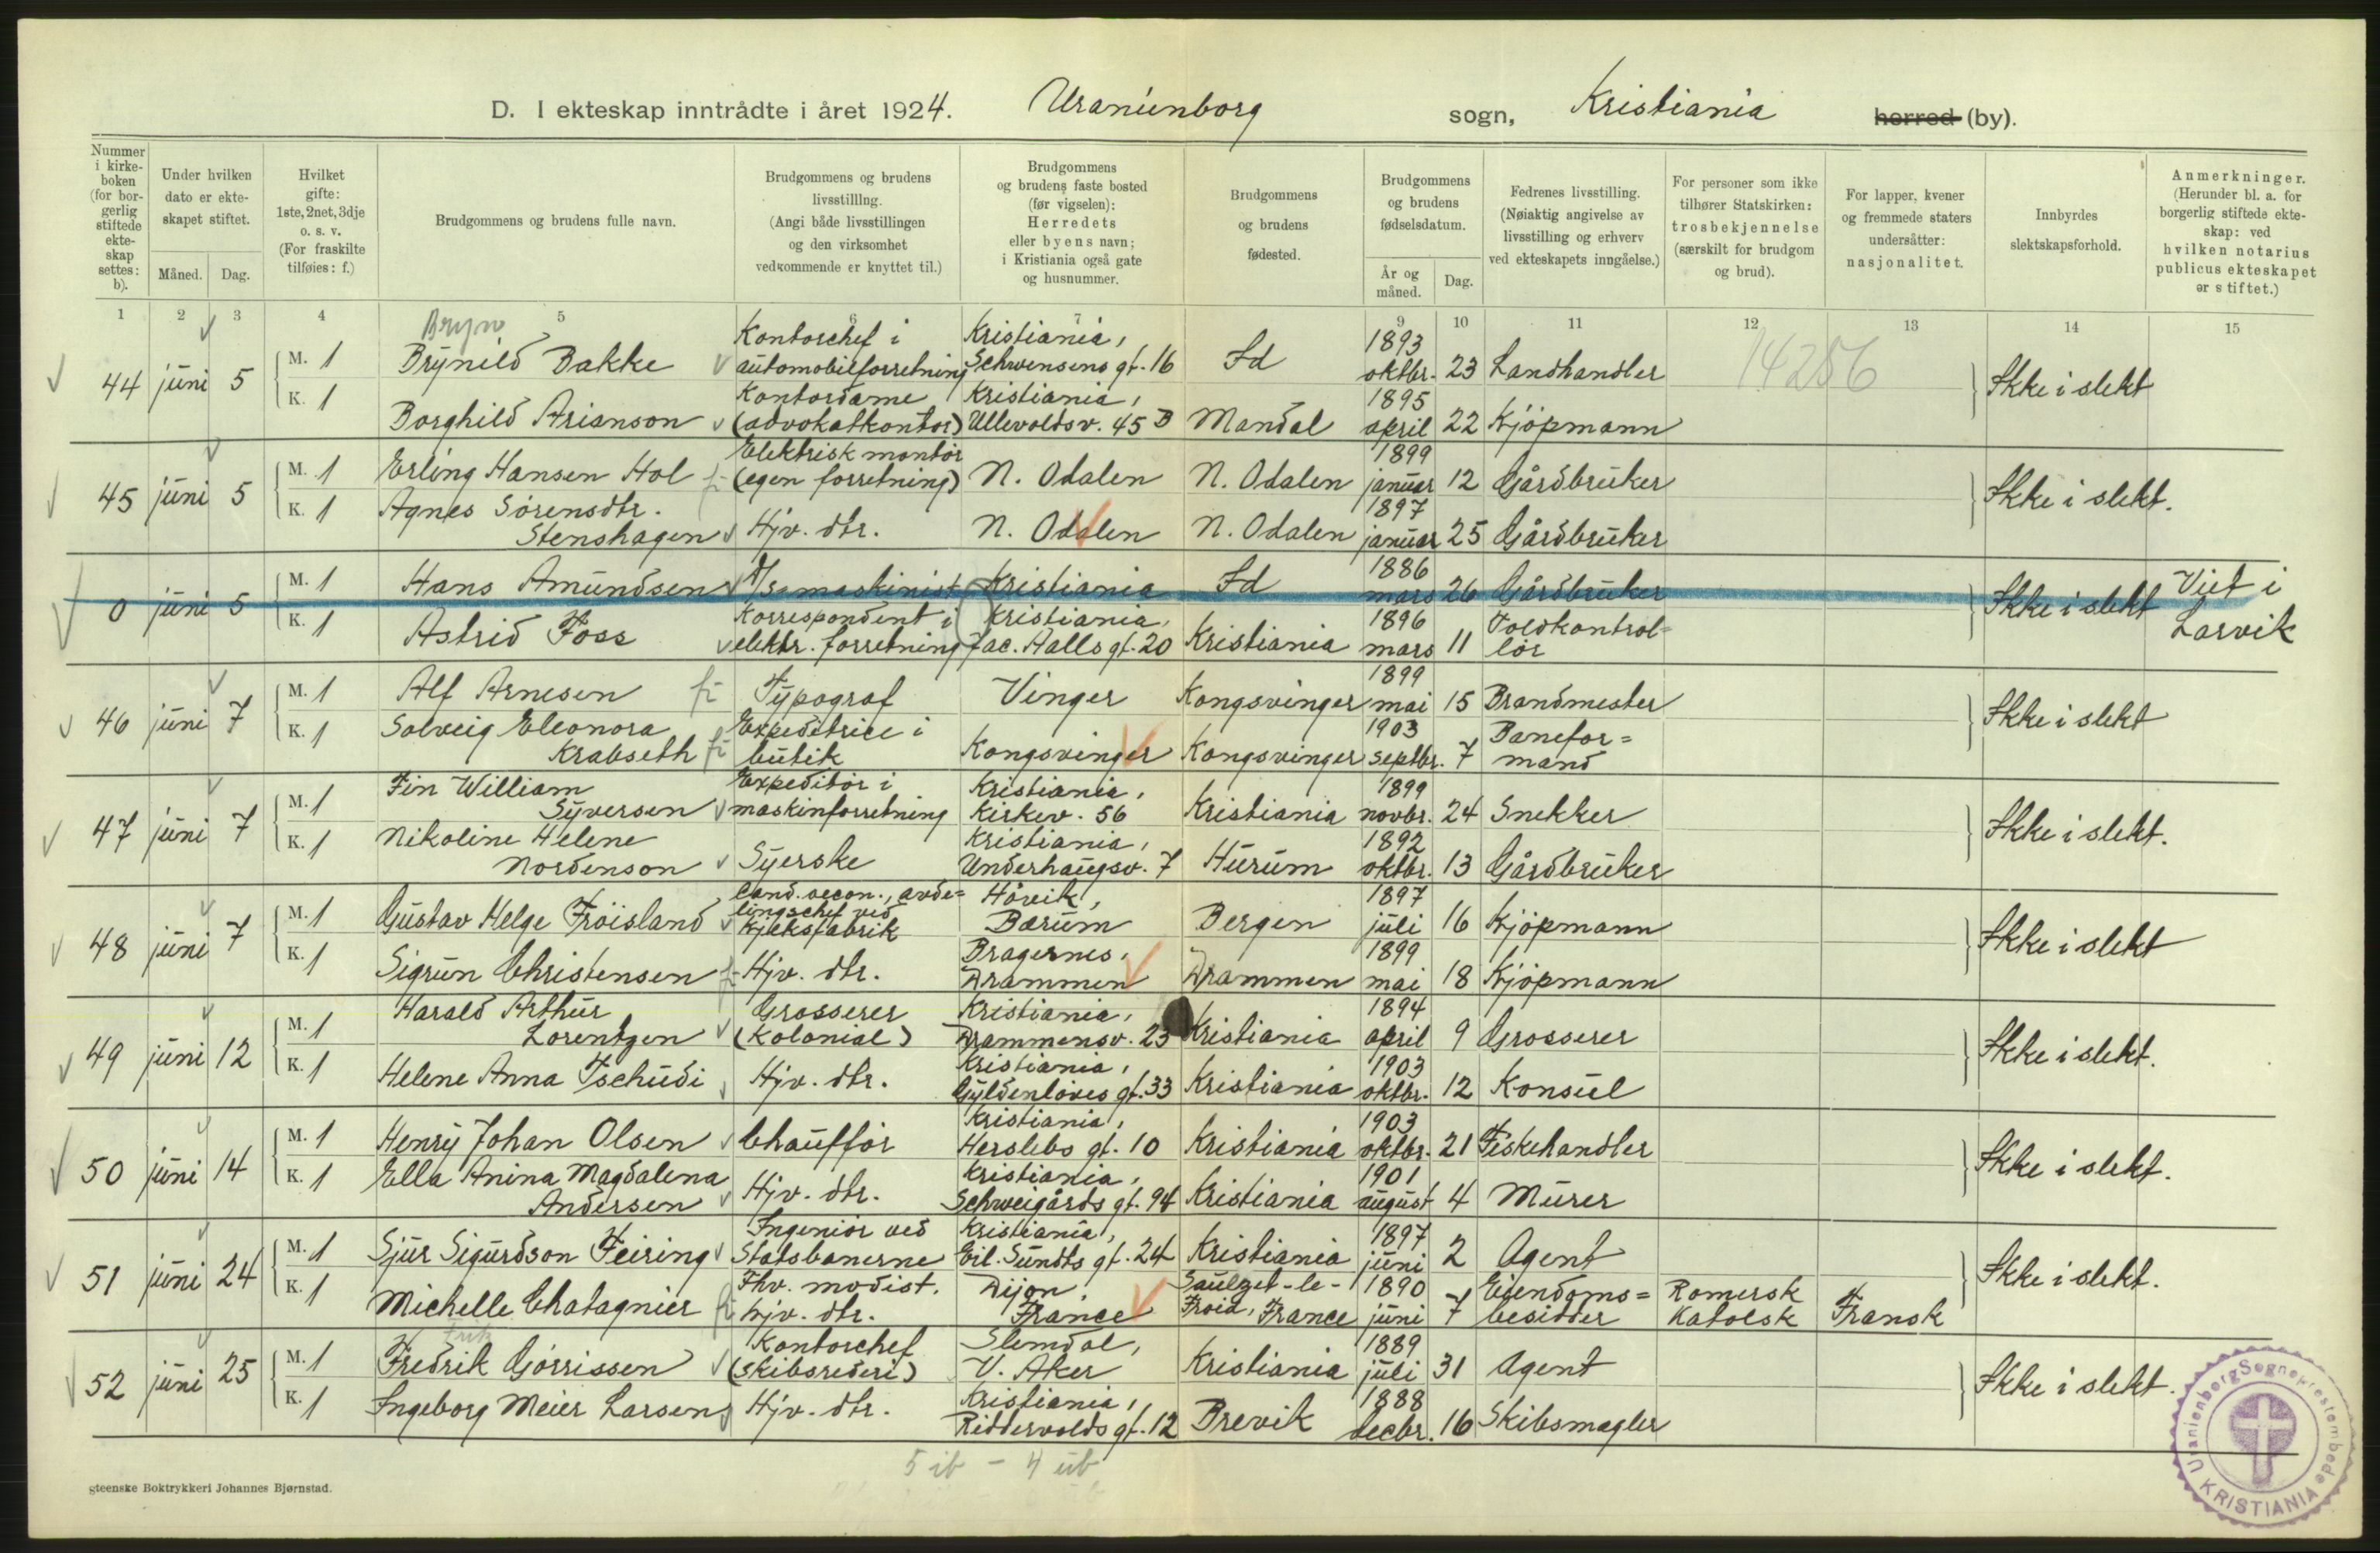 D. I ekteskap inntrådte i året 1924. Uranienborg sogn, Kristiania herred (by).
Nummer i kirke-boken (for bor-gerlig stiftede ekte-skap settes: b).
Under hvilken dato er ekte-skapet stiftet.
Måned. Dag.
Hvilket gifte: 1ste, 2net, 3dje o. s. v. (For fraskilte tilføies: f.)
Brudgommens og brudens fulle navn.
Brudgommens og brudens livsstilling. (Angi både livsstillingen og den virksomhet vedkommende er knyttet til.)
Brudgommens og brudens faste bosted (før vigselen): Herredets eller byens navn; i Kristiania også gate og husnummer.
Brudgommens og brudens fødested.
Brudgommens og brudens fødselsdatum.
År og måned. Dag.
Fedrenes livsstilling. (Nøiaktig angivelse av livsstilling og erhverv ved ekteskapets inngåelse.)
For personer som ikke tilhører Statskirken: trosbekjennelse (særskilt for brudgom og brud).
For lapper, kvener og fremmede staters undersåtter: nasjonalitet.
Innbyrdes slektskapsforhold.
Anmerkninger. (Herunder bl. a. for borgerlig stiftede ekte-skap: ved hvilken notarius publicus ekteskapet er stiftet.)
1 2 3 4 5 6 7 9 10 11 12 13 14 15
Bryn
44 juni 5 M. 1 Brynild Bakke Kontorchef i automobilforretning Kristiania, Schwensens gt. 16 Id 1893 oktbr. 23 Landhandler 14256 Ikke i slekt
K. 1 Borghild Arianson Kontordame (advokatkontor) Kristiania, Ullevoldsv. 45 B Mandal 1895 april 22 Kjöpmann
45 juni 5 M. 1 Erling Hansen Hol Elektrisk montör (egen forretning) N. Odalen N. Odalen 1899 januar 12 Gårdbruker Ikke i slekt.
K. 1 Agnes Sörensdtr. Stenshagen Hjv. dtr. N. Odalen N. Odalen 1897 januar 25 Gårdbruker
0 juni 5 M. 1 Hans Amundsen d/s maskinist Kristiania Id 1886 mars 26 Gårdbruker Ikke i slekt Viet i Larvik
K. 1 Astrid Foss Korrespondent i elektr. forretning Kristiania, Jac. Aalls gt. 20 Kristiania 1896 mars 11 Toldkontrol=lör
46 juni 7 M. 1 Alf Arnesen Typograf Vinger Kongsvinger 1899 mai 15 Brandmester Ikke i slekt
K. 1 Solveig Eleonora Krabseth Expeditrice i butik Kongsvinger Kongsvinger 1903 septbr. 7 Banefor=mand
47 juni 7 M. 1 Fin William Syversen Expeditör i maskinforretning Kristiania, Kirkev. 56 Kristiania 1899 novbr. 24 Snekker Ikke i slekt.
K. 1 Nikoline Helene Nordenson Syerske Kristiania, Underhaugsv. 7 Hurum 1892 oktbr. 13 Gårdbruker
48 juni 7 M. 1 Gustav Helge Fröisland Cand. oecon., avde=lingschef ved Kjeksfabrik Hövik, Bærum Bergen 1897 juli 16 Kjöpmann Ikke i slekt
K. 1 Sigrun Christensen Hjv. dtr. Bragernes, Drammen Drammen 1899 mai 18 Kjöpmann
49 juni 12 M. 1 Harald Arthur Lorentzen Grosserer (Kolonial) Kristiania, Drammensv. 23 Kristiania 1894 april 9 Grosserer Ikke i slekt.
K. 1 Helene Anna Tschudi Hjv. dtr. Kristiania, Gyldenlöves gt. 33 Kristiania 1903 oktbr. 12 Konsul
50 juni 14 M. 1 Henry Johan Olsen Chaufför Kristiania, Herslebs gt. 10 Kristiania 1903 oktbr. 21 Fiskehandler Ikke i slekt.
K. 1 Ella Anina Magdalena Andersen Hjv. dtr. Kristiania, Schweigårds gt. 94 Kristiania 1901 august 4 Murer
51 juni 24 M. 1 Sjur Sigurdson Feiring Ingeniör ved Statsbanerne Kristiania, Eil. Sundts gt. 24 Kristiania 1897 juni 2 Agent Ikke i slekt.
K. 1 Michelle Chatagnier Fhv. modist. hjv. dtr. Dijon, France Saulzet-le-Froid, France 1890 juni 7 Eiendoms=besidder Romersk Katolsk Fransk
Fritz
52 juni 25 M. 1 Fredrik Görrissen Kontorchef (skibsrederi) Slemdal, V. Aker Kristiania 1889 juli 31 Agent Ikke i slekt.
K. 1 Ingeborg Meier Larsen Hjv. dtr. Kristiania, Riddervolds gt. 12 Brevik 1888 decbr. 16 Skibsmegler
5 ib - 4 ub
gteenske Boktrykkeri Johannes Bjørnstad.
Uranienborg Sogneprestembede KRISTIANIA